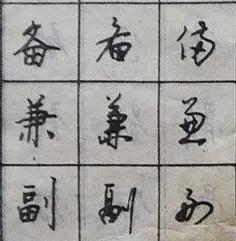 备 备 备
兼 兼 兼
副 副 副